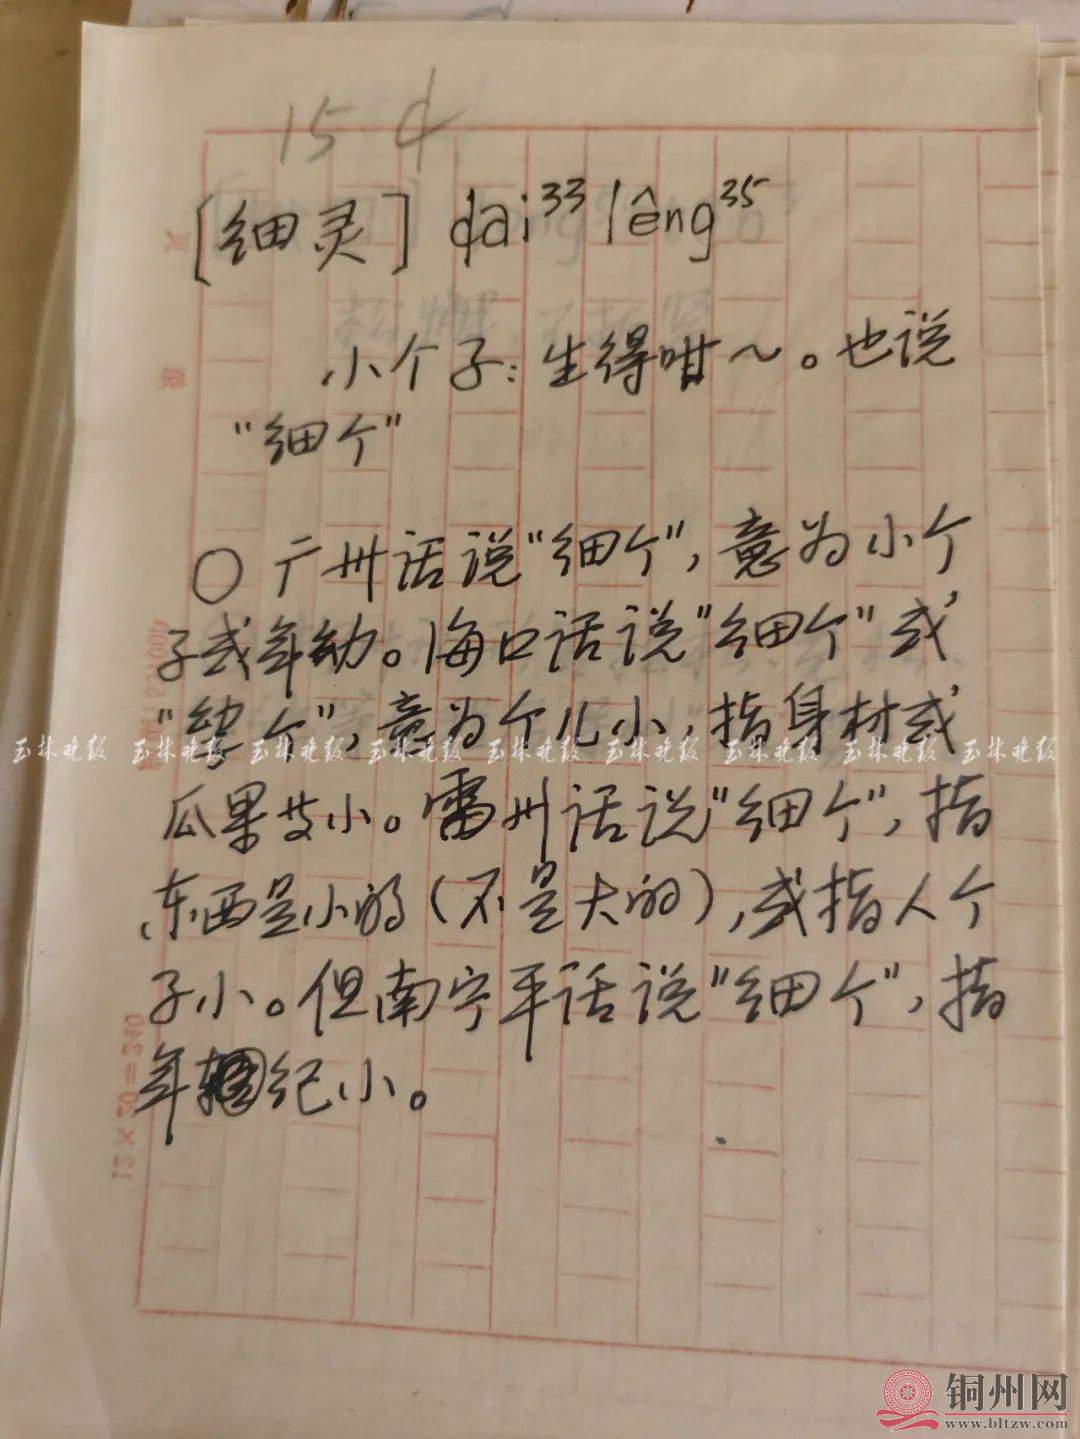 15 ȡ
[细灵] ȡai³³ lêng³⁵
小个子：生得咁～。也说
“细个”
○ 广州话说“细个”，意为小个
子或年幼。海口话说“细个”或
“孧个”，意为个儿小，指身材或
玉林晚报 玉林晚报 玉林晚报 玉林晚报 玉林晚报 玉林晚报 玉林晚报 玉林晚报 玉林晚报
瓜果等小。雷州话说“细个”，指
东西是小的（不是大的），或指人个
子小。但南宁平话说“细个”，指
年纪小。
12×20=240
铜州网
www.bltzw.com